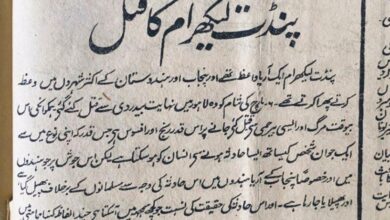 پنڈت لیکھرام کا قتل
پنڈت لیکھرام ایک آریا واعظ تھے اور پنجاب اور ہندوستان کے اکثر شہروں میں وعظ
کرتے پھرا کرتے تھے۔ ۶۔ مارچ کی شام کو وہ لاہور میں نہایت بیدردی سے قتل کئے گئے۔
بیوقت مرگ اور ایسی بیرحمی سے قتل کئے جانے پر اس قدر رنج اور افسوس ہے جس قدر کہ اپنی نوع میں سے
ایک جوان شخص کیساتھ ایسا حادثہ ہونے سے انسان کو ہو سکتا ہے لیکن اس جوش پر جو ہندوں
میں اور خصوصاً پنجاب کے آریا ہندوں میں اس حادثہ کی وجہ سے مسلمانوں کے برخلاف پھیل گیا
اور پھیلایا جا رہا ہے۔ اور اس حادثہ کی حقیقت کی نسبت جو کچھ